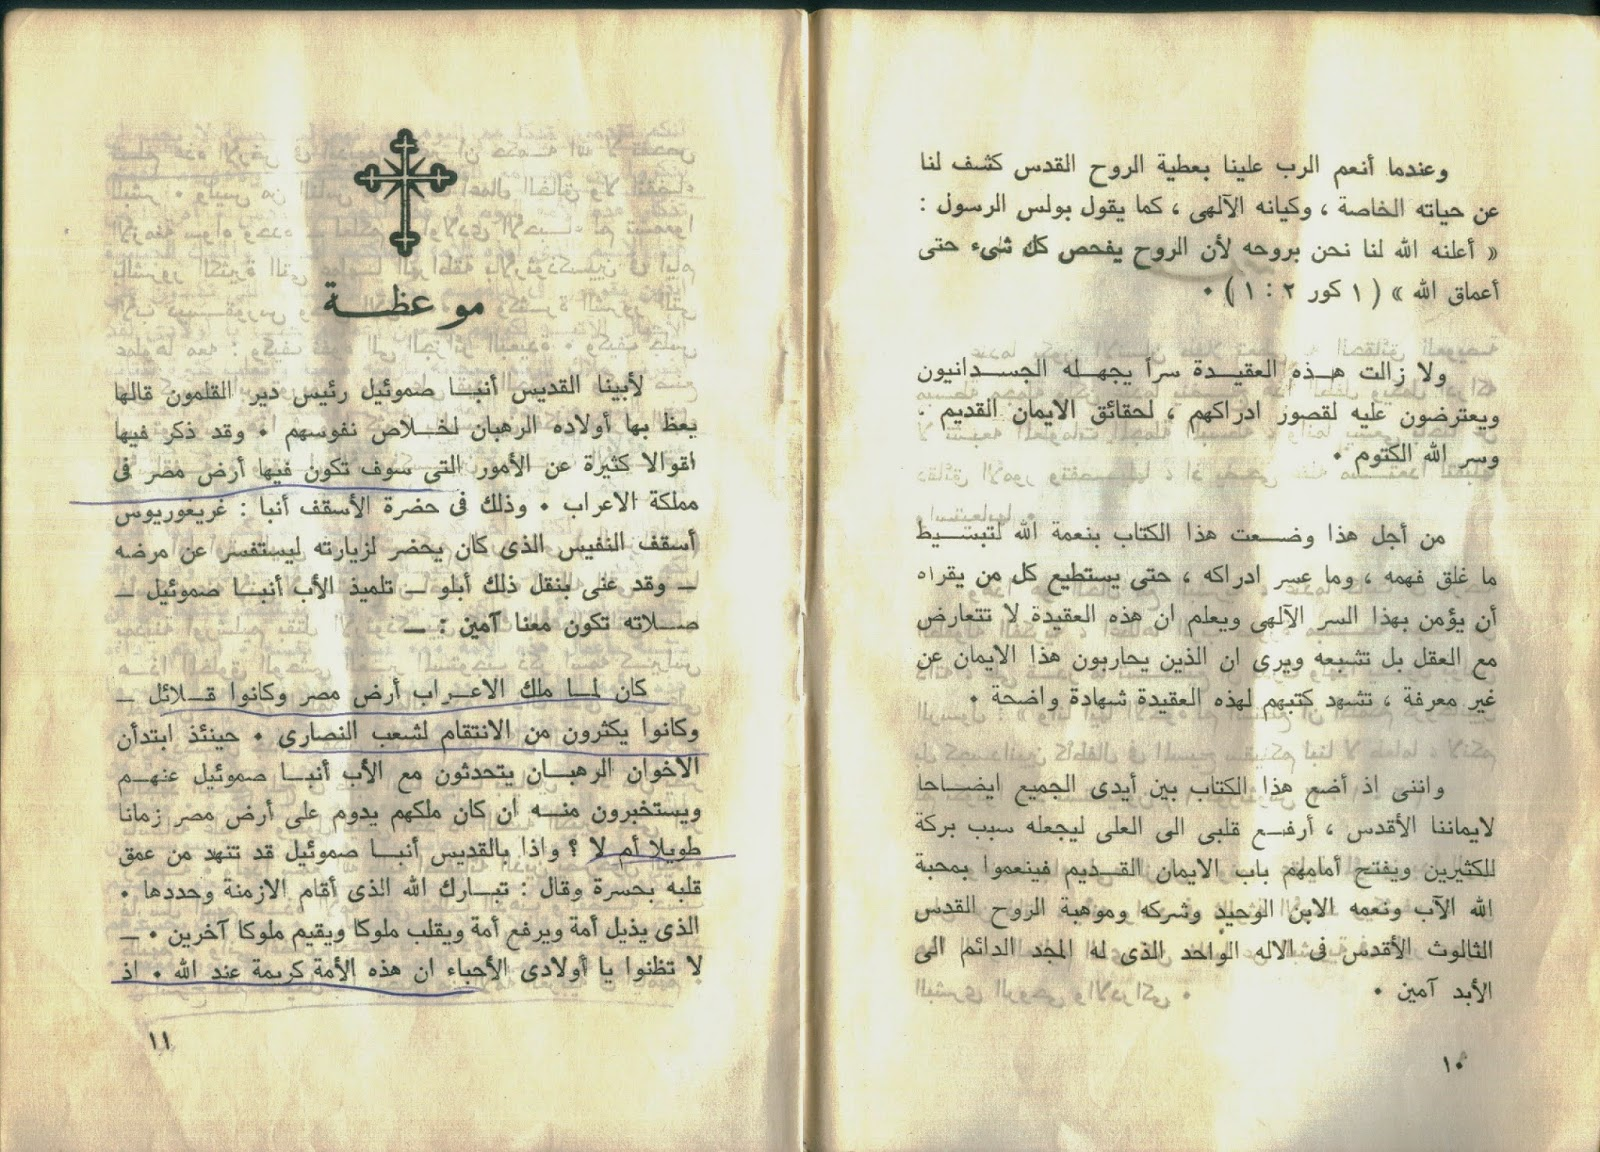 وعندما أنعم الرب علينا بعطية الروح القدس كشف لنا
عن حياته الخاصة ، وكيانه الآلهى ، كما يقول بولس الرسول :
« أعلنه الله لنا نحن بروحه لأن الروح يفحص كل شىء حتى
أعماق الله » ( ١ كور ٢ : ١ ) ٠
ولا زالت هــذه العقيـدة سرأ يجهــله الجســدانيون
ويعترضون عليه لقصور ادراكهم ، لحقائق الايمان القديم ٠
وسر الله الكتوم ٠
من أجل هذا وضــعت هذا الكتاب بنعمة الله لتبســيط
ما غلق فهمه ، وما عسر ادراكه ، حتى يستطيع كل من يقراه
أن يؤمن بهذا السر الآلهى ويعلم ان هذه العقيدة لا تتعارض
مع العقل بل تشبعه ويرى ان الذين يحاربون هذا الايمان عن
غير معرفة ، تشهد كتبهم لهذه العقيدة شهادة واضحة ٠
واننى اذ أضع هذا الكتاب بين أيدى الجميع ايضــاحا
لايماننا الأقدس ، أرفــع قلبى الى العلى ليجعله سبب بركة
للكثيرين ويفتح أمامهم باب الايمان القــديم فينعموا بمحبة
الله الآب ونعمه الابن الوحيد وشركه وموهبة الروح القدس
الثالوث الأقدس فى الاله الواحد الذى له المجد الدائم الى
الأبد آمين ٠
١٠
موعظــة
لأبينا القديس أنبــا صموئيل رئيس دير القلمون قالها
يعظ بها أولاده الرهبان لخــلاص نفوسهم ٠ وقد ذكر فيها
اقوالا كثيرة عن الأمور التى سوف تكون فيها أرض مصر فى
مملكة الاعراب ٠ وذلك فى حضرة الأسقف أنبا : غريغوريوس
أسقف النفيس الذى كان يحضر لزيارته ليستفسر عن مرضه
ــ وقد عنى بنقل ذلك أبلو ــ تلميذ الأب أنبــا صموئيل ــ
صــلاته تكون معنا آمين : ــ
كان لمــا ملك الاعــراب أرض مصر وكانوا قــلائل ــ
وكانوا يكثرون من الانتقام لشعب النصارى ٠ حينئذ ابتدأن
الاخوان الرهبــان يتحدثون مع الأب أنبــا صموئيل عنهــم
ويستخبرون منــه ان كان ملكهم يدوم على أرض مصر زمانا
طويلا أم لا ؟ واذا بالقديس أنبــا صموئيل قد تنهد من عمق
قلبه بحسرة وقال : تبــارك الله الذى أقام الازمنة وحددها ٠
الذى يذيل أمة ويرفع أمة ويقلب ملوكا ويقيم ملوكا آخرين ٠ ــ
لا تظنوا يا أولادى الأحباء ان هذه الأمة كريمة عند الله ٠ اذ
١١